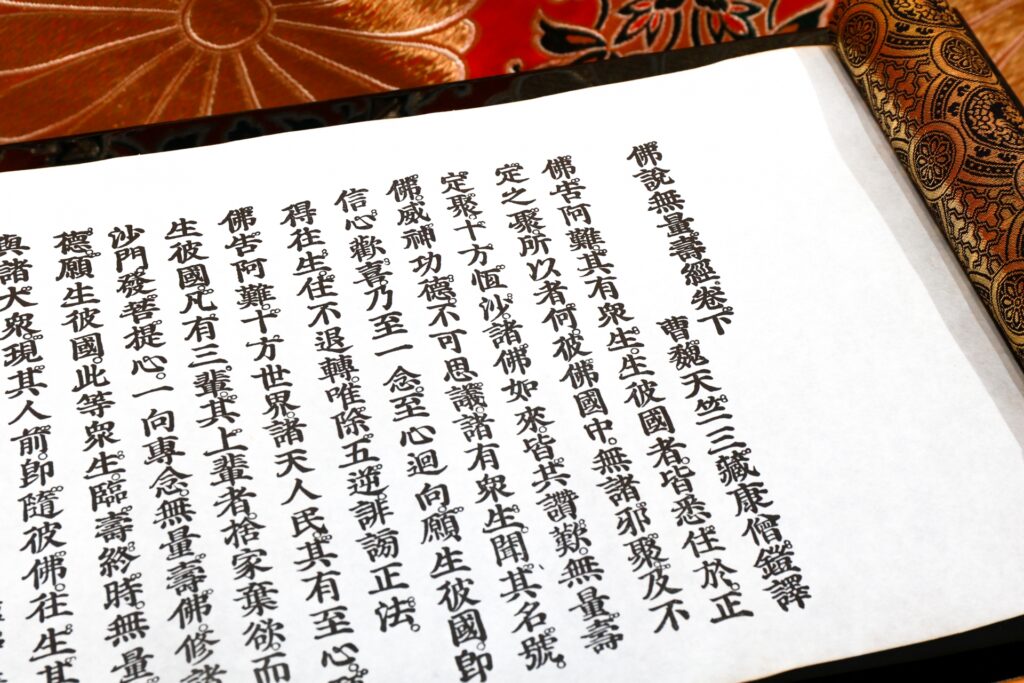 佛說無量壽經卷下
曹魏天竺三藏康僧鎧譯
佛告阿難其有衆生生彼國者皆悉住於正
定之聚所以者何彼佛國中無諸邪聚及不
定聚十方恒沙諸佛如來皆共讚歎無量壽
佛威神功德不可思議諸有衆生聞其名號
信心歡喜乃至一念至心迴向願生彼國卽
得往生住不退轉唯除五逆誹謗正法
佛告阿難十方世界諸天人民其有至心
生彼國凡有三輩其上輩者捨家棄欲而
沙門發菩提心一向專念無量壽佛修諸
德願生彼國此等衆生臨壽終時無量
與諸大衆現其人前卽隨彼佛往生其